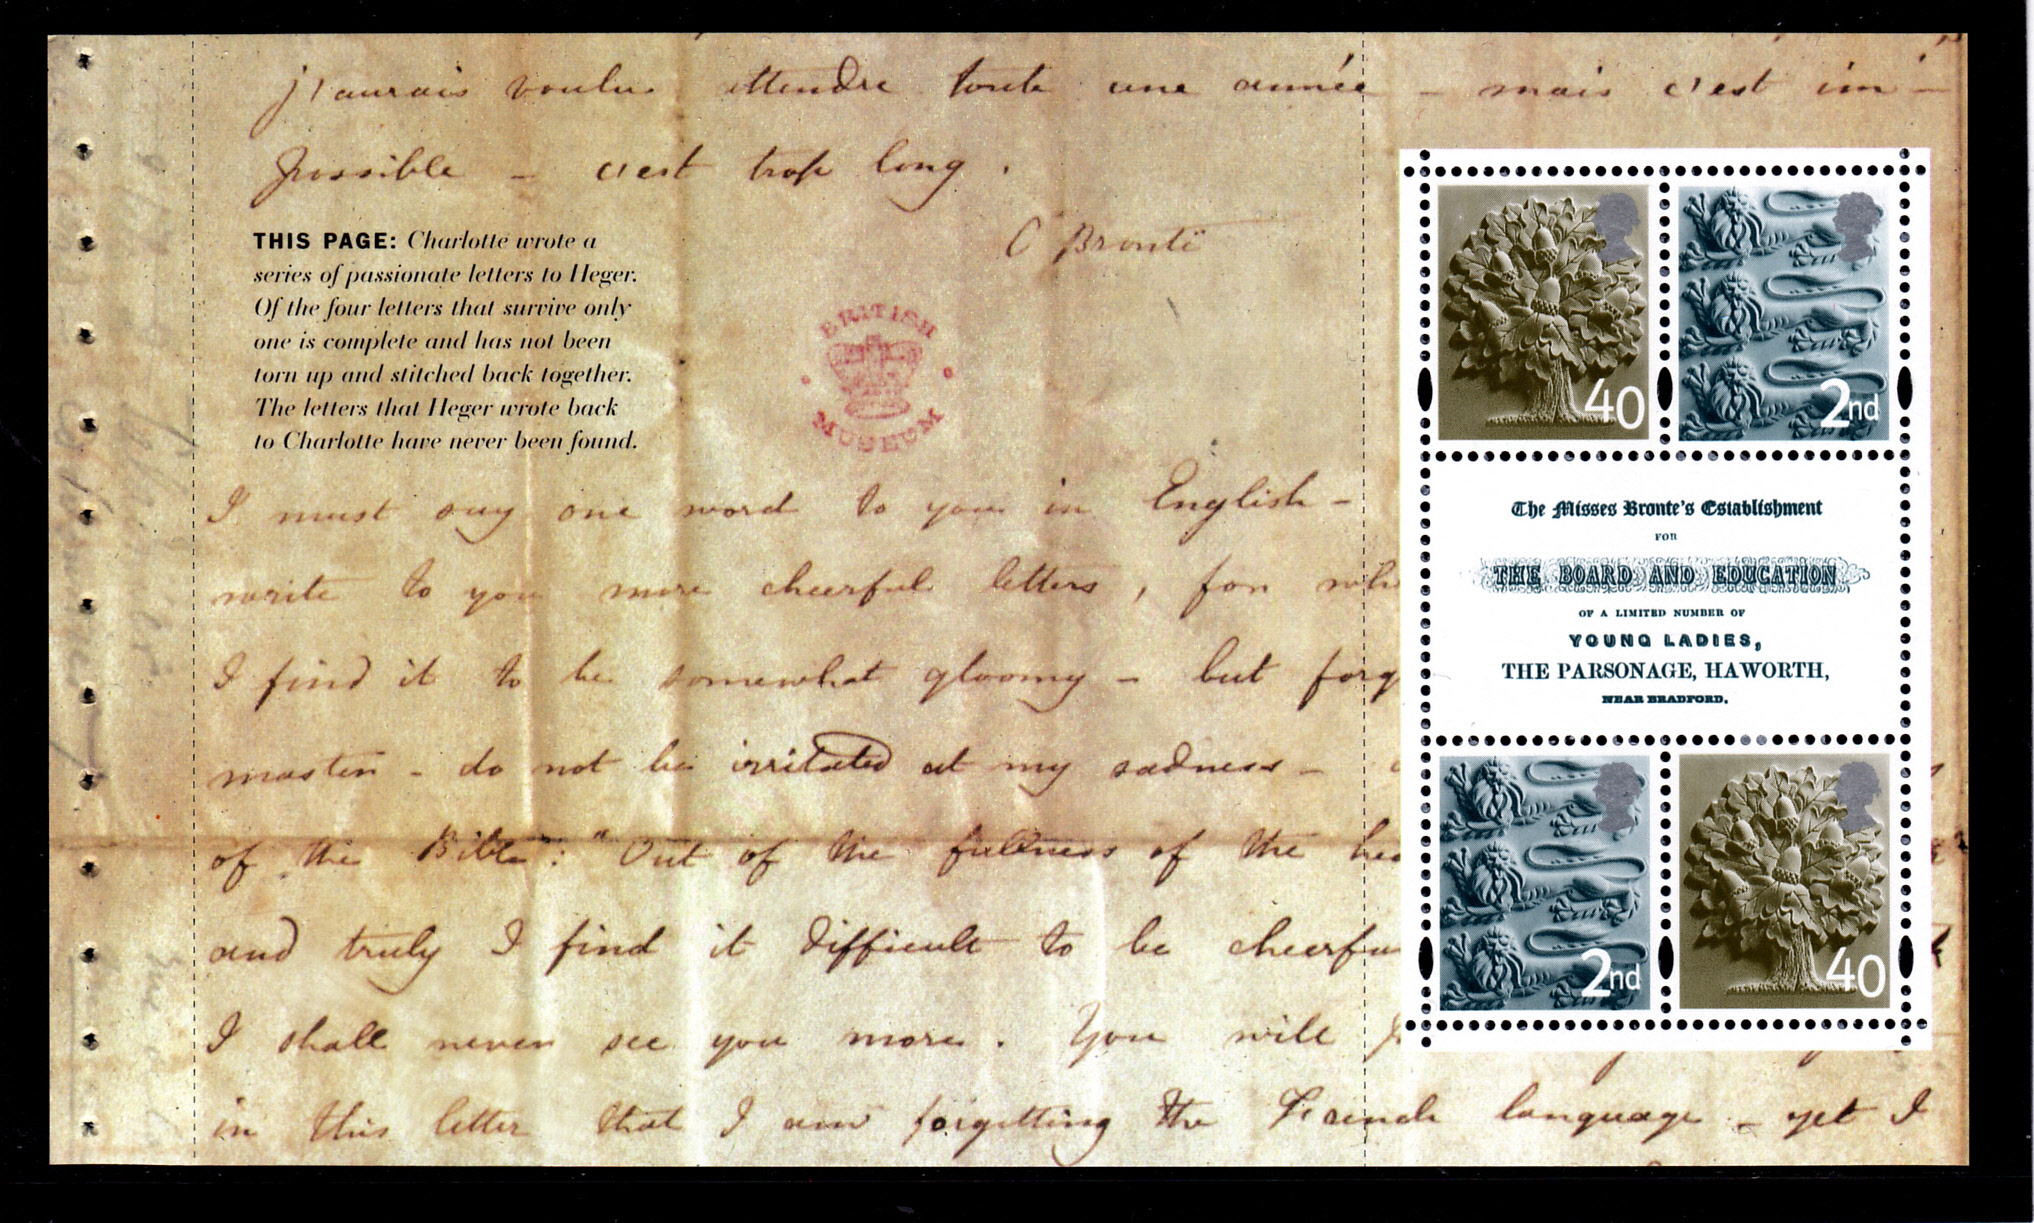 j'aurais voulu attendre toute une année – mais c'est im-
possible – c'est trop long.
C Brontë
THIS PAGE: Charlotte wrote a
series of passionate letters to Heger.
Of the four letters that survive only
one is complete and has not been
torn up and stitched back together.
The letters that Heger wrote back
to Charlotte have never been found.
BRITISH
MUSEUM
I must say one word to you in English –
write to you more cheerful letters, for whe
I find it to be somewhat gloomy – but forg
master – do not be irritated at my sadness –
of the Bible: "Out of the fullness of the hea
and truly I find it difficult to be cheerfu
I shall never see you more. You will
in this letter that I am forgetting the French language – yet I
40
2nd
The Misses Bronte's Establishment
FOR
THE BOARD AND EDUCATION
OF A LIMITED NUMBER OF
YOUNG LADIES,
THE PARSONAGE, HAWORTH,
NEAR BRADFORD.
2nd
40